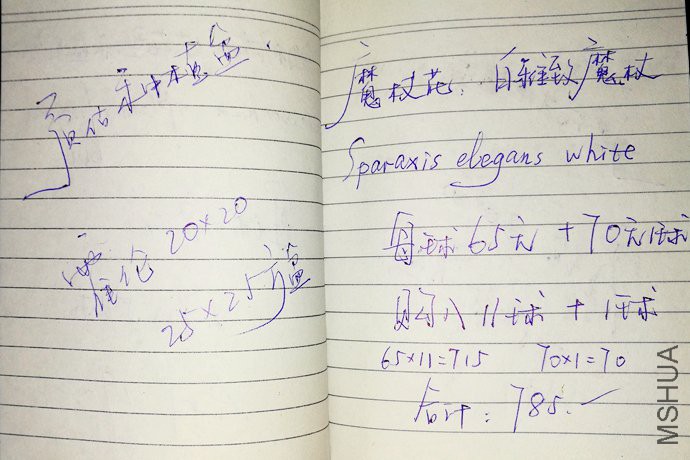 预估种植盆.
20×20
25×25方盆
魔杖花：白雅致魔杖
Sparaxis elegans white
每球65元+70元1球
购入11球+1球
65×11=715 70×1=70
合计：785.
MSHUA